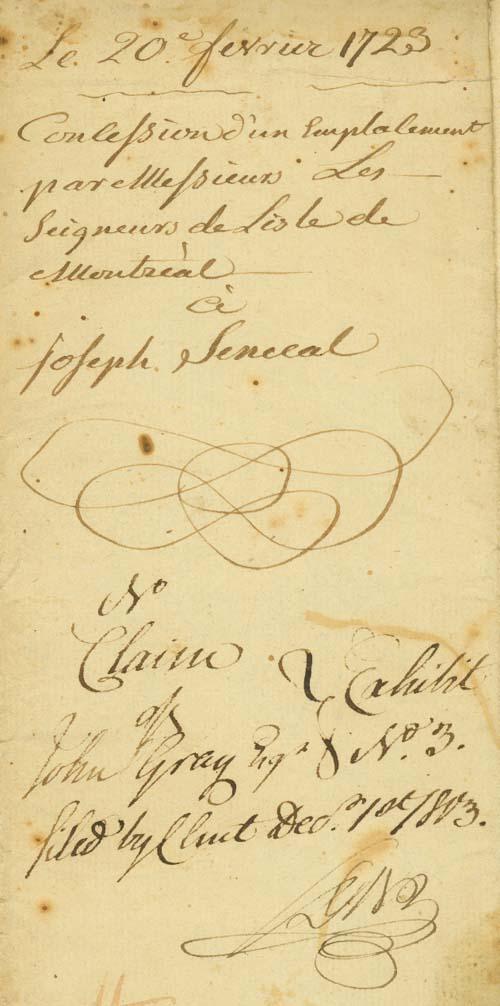 Le 20e fevrier 1723
Concession d'un Emplacement
par Messieurs Les
Seigneurs de Lisle de
Montréal
à
Joseph Senecal
No
Claim
of
John Gray Esqr
Exhibit
No. 3.
filed by Clmt Decr. 1st 1803.